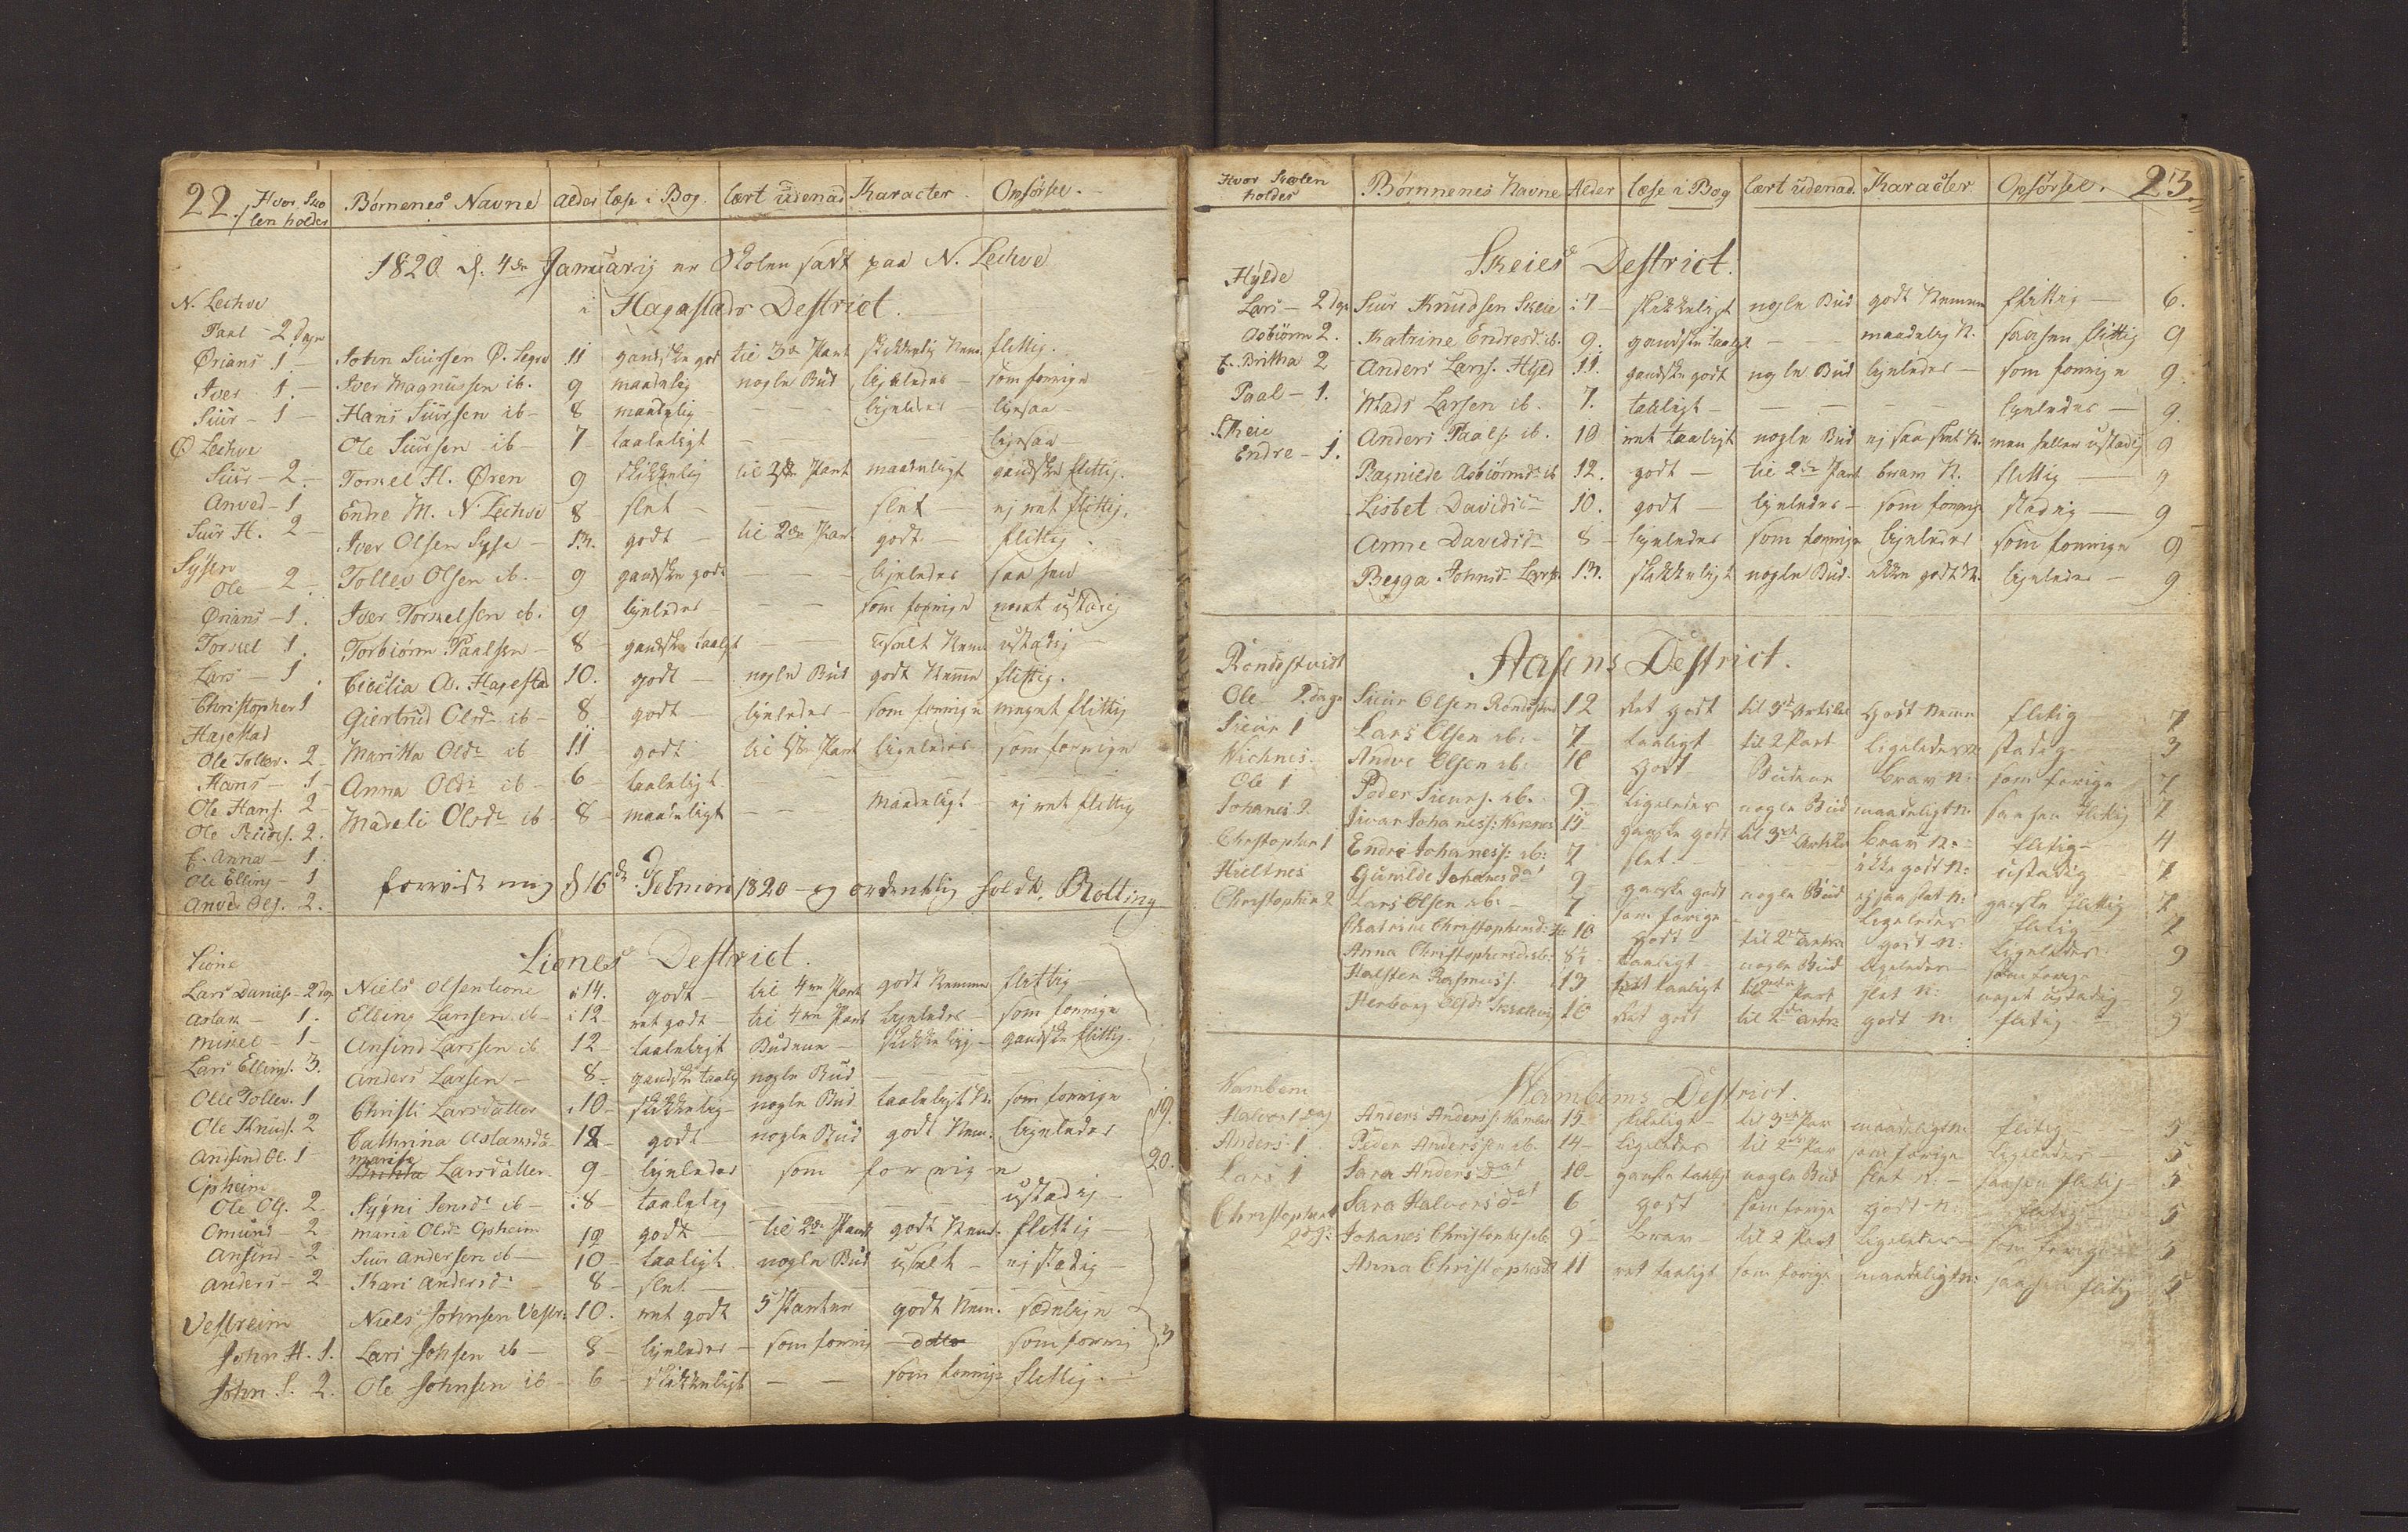 22. Hvor Sko len holdes Børnenes Navne alder læse i Bog. lært udenad Karacter Opførsel.
1820 d. 4de Januarij er Skolen sadt paa N. Lechve
i Hagestads Destrict.
N. Lechve
Paal - 2 Dage
Ørians 1 - John Siursen Ø. Legre 11 gandske god til 3die Part skikkelig Nem. flittig.
Iver - 1 - Iver Magnussen ib. 9 maadelig nogle Bud ligeledes - som forrige
Siur - 1 - Hans Siursen ib - 8 maadelig - ligeledes - ligesaa -
Ø Lechve Ole Siursen ib - 7 taaleligt - ligesaa -
Siur - 2 - Torkel H. Øren 9 skikkelig til 2den Part maadeligt gandske flittig.
Anved - 1 Endre M. N Lechve 8 slet - slet - ej ret flittig.
Siur H. 2 - Iver Olsen Syse - 13. godt - til 2den Part godt - flittig.
Sysen
Ole - 2 - Tollev Olsen ib. - 9 gandske godt - ligeledes saasom
Ørians - 1. Iver Torkelsen ib. 9 ligeledes - som forrige noget ustadig
Torkel 1. Torbiørn Paalsen - 8 gandske taalgt - Nem ustadig
Lars - 1 Cicilia A. Hagestad 10. godt - nogle Bud godt Nemme flittig.
Christopher 1 Giertrud Olsdr ib - 8 godt - ligeledes - som forrige meget flittig
Hagestad
Ole Tollev. 2 - Maritta Oldr ib 11 godt til 1ste Part ligeledes som forrige
Hans - 1 - Anna Oldr ib - 6 - taaleligt
Ole Hans. 2 - Madeli Olsdr ib - 8 - maadeligt - Maadeligt - ej ret flittig
Ole 2.
E. Anna - 1.
Ole Elling - 1 forevist mig d 16de Februari 1820 - og ordentlig holdt. Rolting
Anve Ols. 2.
Lione
Liones Destrict.
Lars Daniels. - 2 Dag Niels Olsen Lione 14. godt - til 4de Part godt Nemme flittig
Aslak - 1. Elling Larssen ib - 12 - ret godt - til 4de Part ligeledes - som forrige
Mikel - 1 - Ansind Larssen ib 12 - taaleligt Budene - skikkelig - gandske flittig
Lars Ellings. 3. Anders Larsen - 8. gandske taalig nogle Bud
Olle Tollev. 1 Christi Larsdatter 10 - skikkelig - nogle Bud taaleligt N. som forrige 19.
Ole Knuds. 2 Cathrina Aslaksdr 12 - godt - nogle Bud godt Nem. ligeledes
Ansind El. 1 - Marita Larsdatter 9 - ligeledes som forrige 20.
Opheim
Ole Ols. 2 Sygni Jensdr ib - 8 - taalelig - ustadig -
Omund - 2 Maria Oldr Opheim 12 godt - til 2den Part godt Nem. flittig
Ansind - 2 Siur Andersen ib - 10 - taaligt nogle Bud uselt - ej stadig -
Anders - 2 Kari Andersdr 8 - slet -
Vestreim Niels Johnsen Vestr: 10. ret godt 5 Parter godt Nem. sædelige
John H. 1. Lars Johsen ib - 8 - ligeledes - som forrig - ditto som forrig 3
John S. 2. Ole Johnsen ib - 6 - skikkeligt - - som forrige flittig -
Hvor Skolen holdes Børnnenes Navne Alder læse i Bog lært udenad. Karacter Opførsel. 23.
Skeies Destrict.
Hylde
Lars - 2 Dge Siur Knudsen Skeie 7 - skikkeligt nogle Bud godt Nemme flittig - 6.
Asbiørn 2. Katrine Endresdr ib. 9. gandske taalgt - - maadelig N. saasom flittig 9
E. Britha 2 Anders Larss. Hyld 11. gandske godt nogle Bud ligeledes - som forrige 9.
Paal - 1. Mads Larsen ib. 7. taaligt - - - ligeledes - 9.
Skeie Anders Paals. ib. 10 ret taaligt nogle Bud ej saa slet N. men heller ustadig 9
Endre - 1. Ragnilde Asbiørnsdr ib 12. godt - til 2den Part bram N. flittig - 9
Lisbet Davidsdr 10. godt - ligeledes - som forrige stadig - 9
Anne Davidsdr 8 - ligeledes som forrige ligeledes som forrige 9
Begga Johnsdr 13. skikkeligt nogle Bud. ikke godt N. ligeledes - 9
Aasens Destrict.
Ole - 2 dage Siur Olsen 12 Ret godt til 3die Artikel Godt Nemme flitig 7
Sieur 1 Lars Olsen ib: - 7 - taaligt til 2 Part Ligeledes stadig 3
Vichnes. Andve Olsen ib: 10 Godt Budene brav N: som forige 7
Ole 1 Peder Sieurs. ib. 9 - ligeledes nogle Bud maadeligt N: saasom flittig 7
Johanes 2. Siver Johaness: Viknes 15 ganske godt til 3die Artikl brav N: - flitig - 4
Christopher 1 Endre Johaness: ib: 7 slet - - ikke godt N: ustadig 7
Hieltnes Gunilde Johanesdat 9 ganske godt nogle Bud ej saa slet N: ganske flittig 7
Christopher 2 Lars Olsen ib: - 7 som forige - Ligeledes flitig 7
Christophersd: 10 Godt til 2den Artik: godt N: Ligeledes
Anna Christophersd: ib: 8½ - taaligt - nogle Bud ligeledes - som forige 9
Halsten Rasmuss. 13 taaligt til Part slet N: noget ustadig 9
Herborg Olsdr 10 Ret godt til 2den Artik godt N: flitig 9
Kambem
Kambems Destrict.
Halvor 1 Dag Anders Anderss: Kambe 15 skikeligt - til 3die Par maadeligt N: flitig - 5
Anders 1 Peder Anderssen ib. 14 - Ligeledes til 2den Par som forige Ligeledes - 5
Lars 1 Sara Andersdat 10 - ganske taaligt nogle Bud slet N: - saasom flitig 5
Christopher Sara Halvorsdat 6 Godt som forige godt N: flitig 5
2 dge: Johanes Christophs ib 9 - brav - til 2 Part Ligeledes - som forige 5
Anna Christophersd 11 ret taaligt som forige maadeligt N: saasom flitig 5